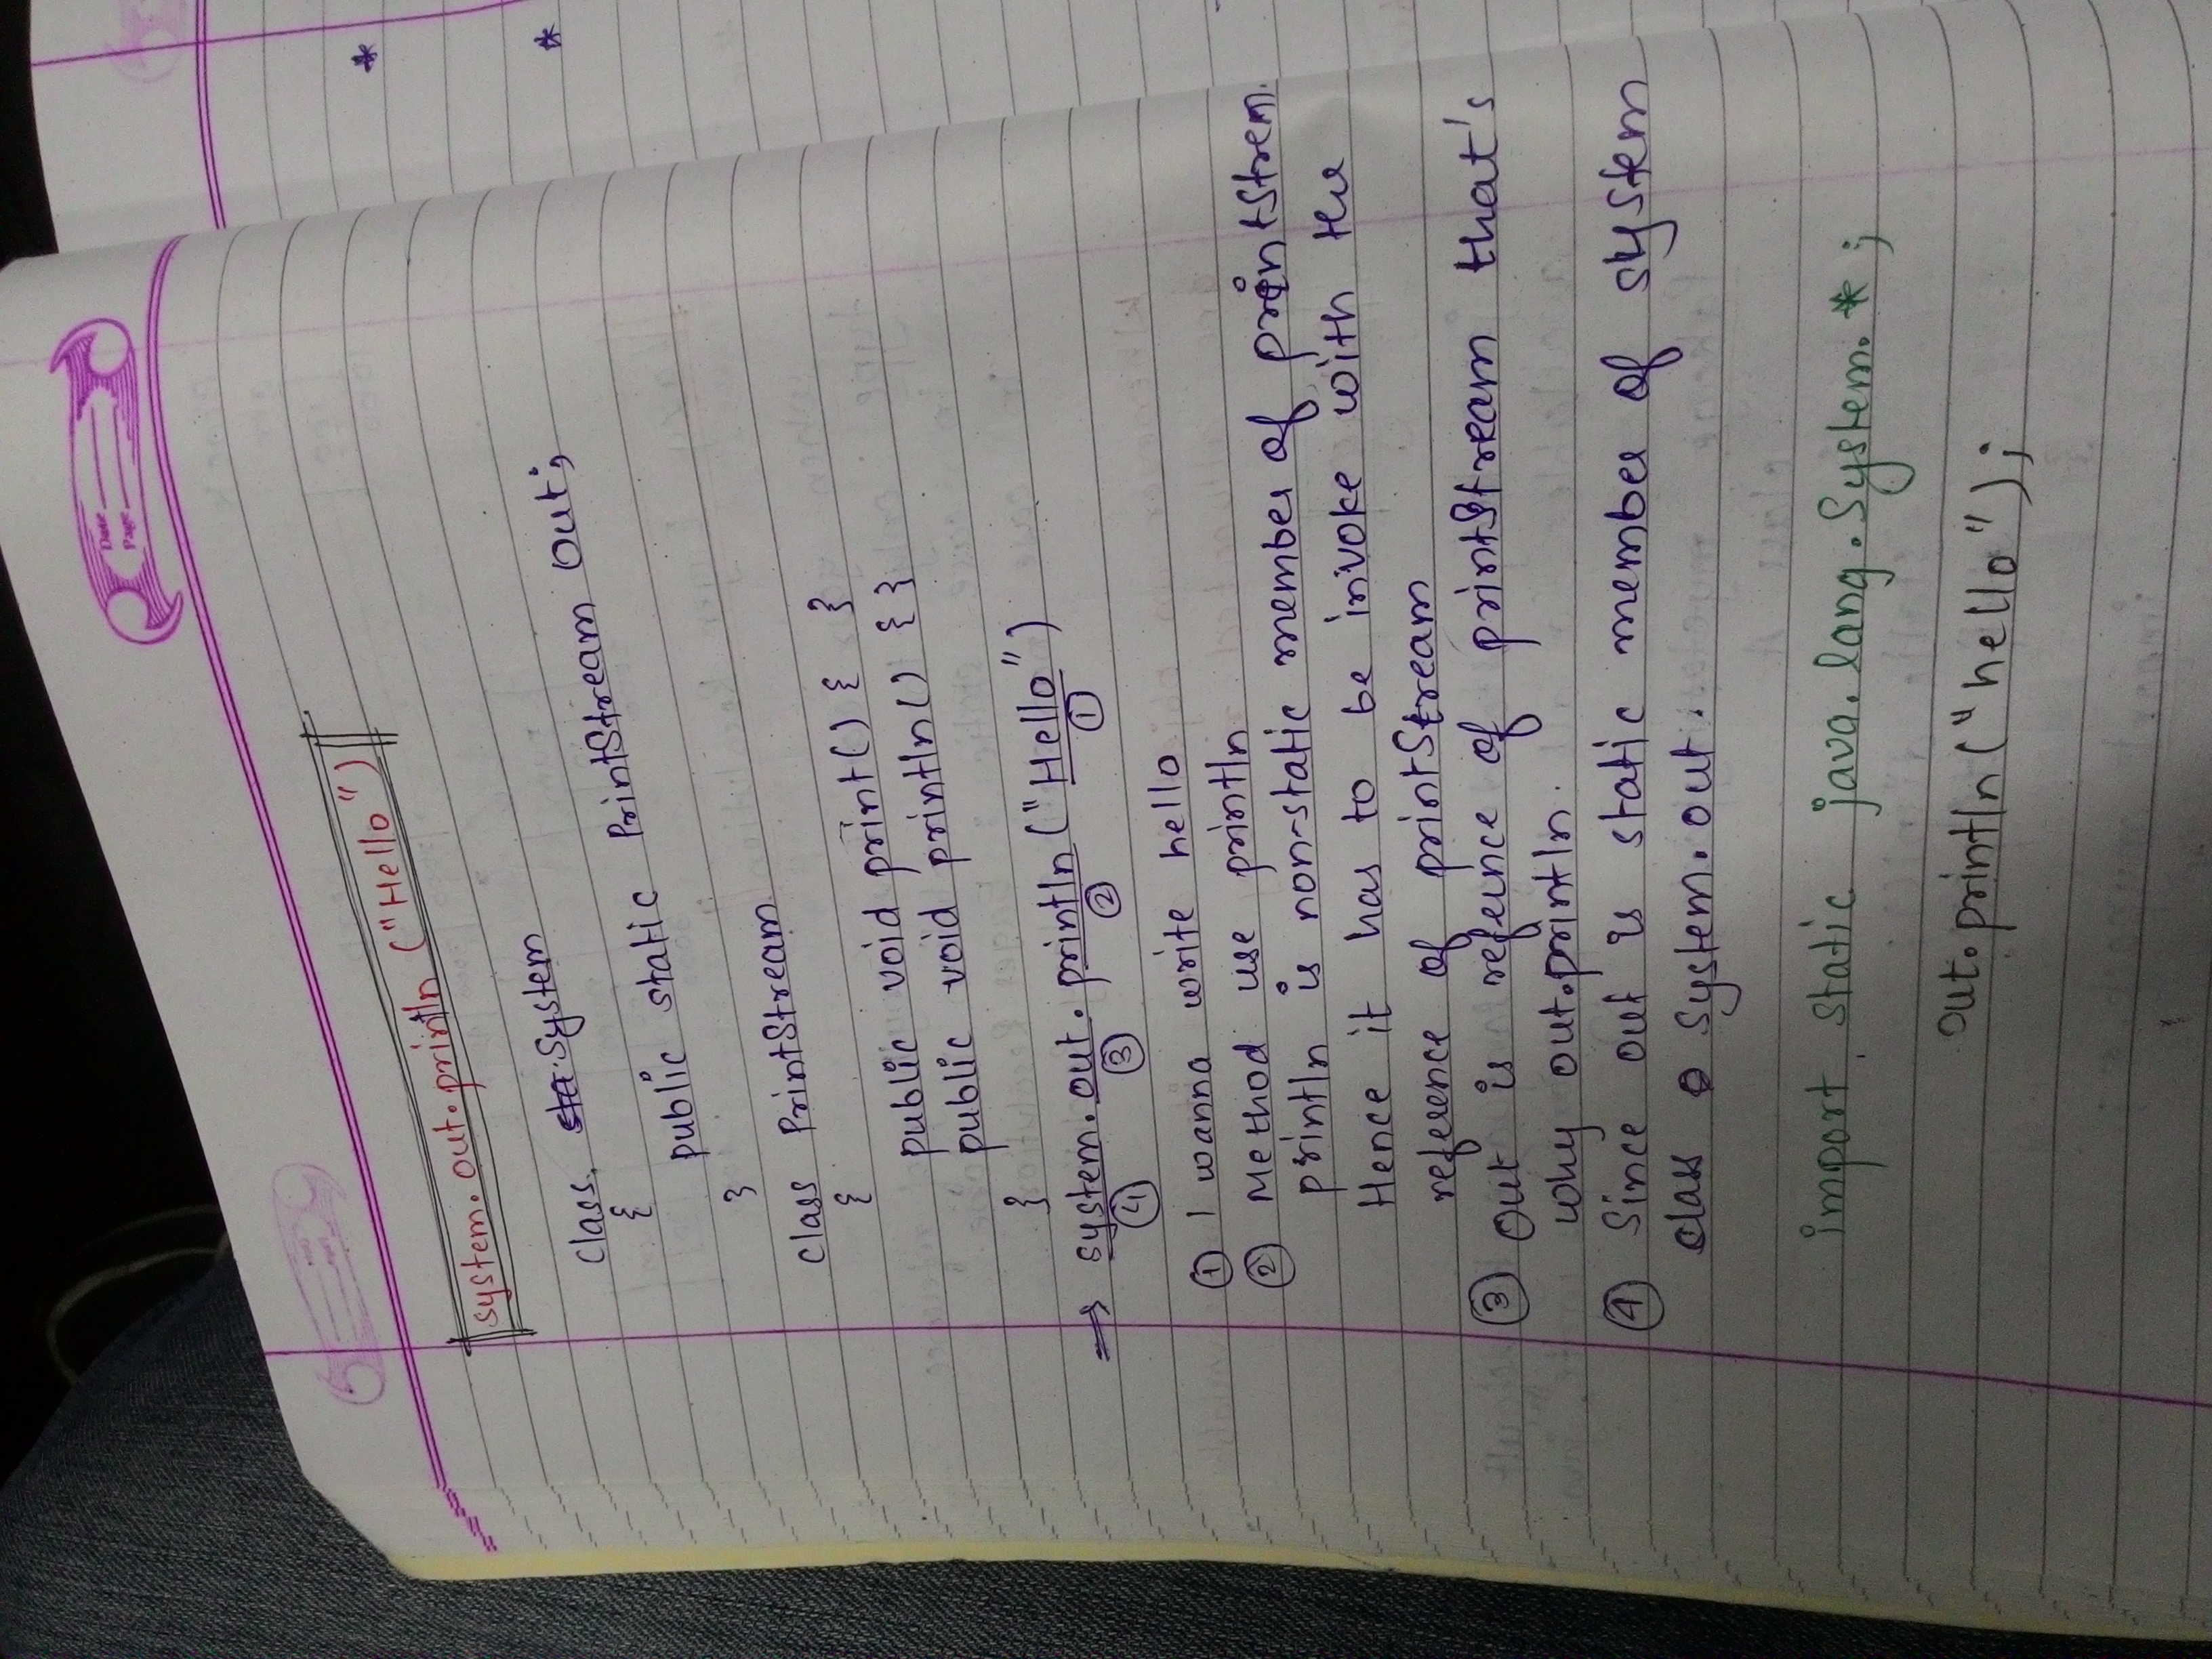 Date
Page
system.out.println ("Hello")
class System
{
public static PrintStream out;
}
class PrintStream
{
public void print() { }
public void println() { }
}
⇒ system.out.println("Hello")
④ ③ ② ①
① I wanna write hello
② Method use println
println is non-static member of printStrem.
Hence it has to be invoke with the
reference of printStream
③ out is refeince of printStream that's
why out.println.
④ Since out is static member of system
class system.out.
import static java.lang.System.*;
out.println("hello");
*
*